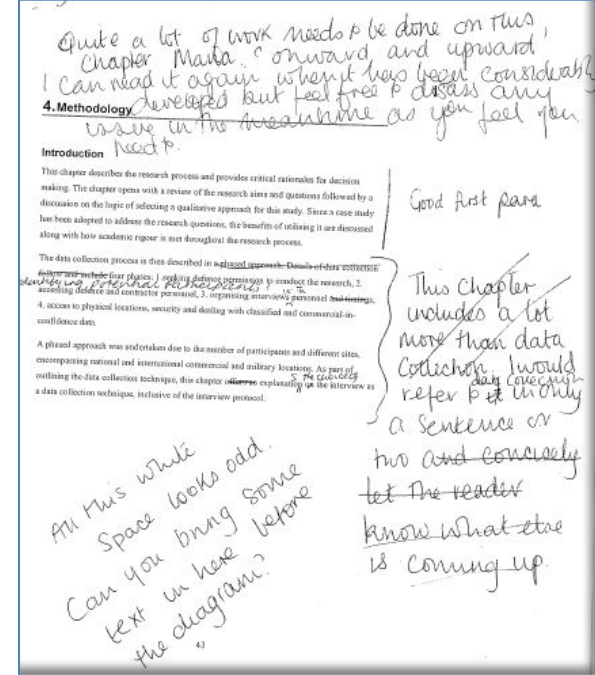 Quite a lot of work needs to be done on this
Chapter Maria. "onward and upward"
I can read it again when it has been considerably
developed but feel free to discuss any
issue in the meantime as you feel you
need to.
4. Methodology
Introduction
This chapter describes the research process and provides critical rationales for decision
making. The chapter opens with a review of the research aims and questions followed by a
discussion on the logic of selecting a qualitative approach for this study. Since a case study
has been adopted to address the research questions, the benefits of utilising it are discussed
along with how academic rigour is met throughout the research process.
Good first para
The data collection process is then described in a phased approach. Details of data collection
follow and include four phases: 1 seeking defence permission to conduct the research, 2.
identifying potential participants
accessing defence and contractor personnel, 3. organising interviews personnel and timings,
4. access to physical locations, security and dealing with classified and commercial-in-
confidence data.
A phased approach was undertaken due to the number of participants and different sites,
encompassing national and international commercial and military locations. As part of
outlining the data collection technique, this chapter explanation the interview as
a data collection technique, inclusive of the interview protocol.
This Chapter
includes a lot
more than data
Collection. I would
data collection
refer to it in only
a sentence or
two and concisely
let the reader
know what else
is coming up.
All this white
Space looks odd.
Can you bring some
text in here before
the diagram?
43